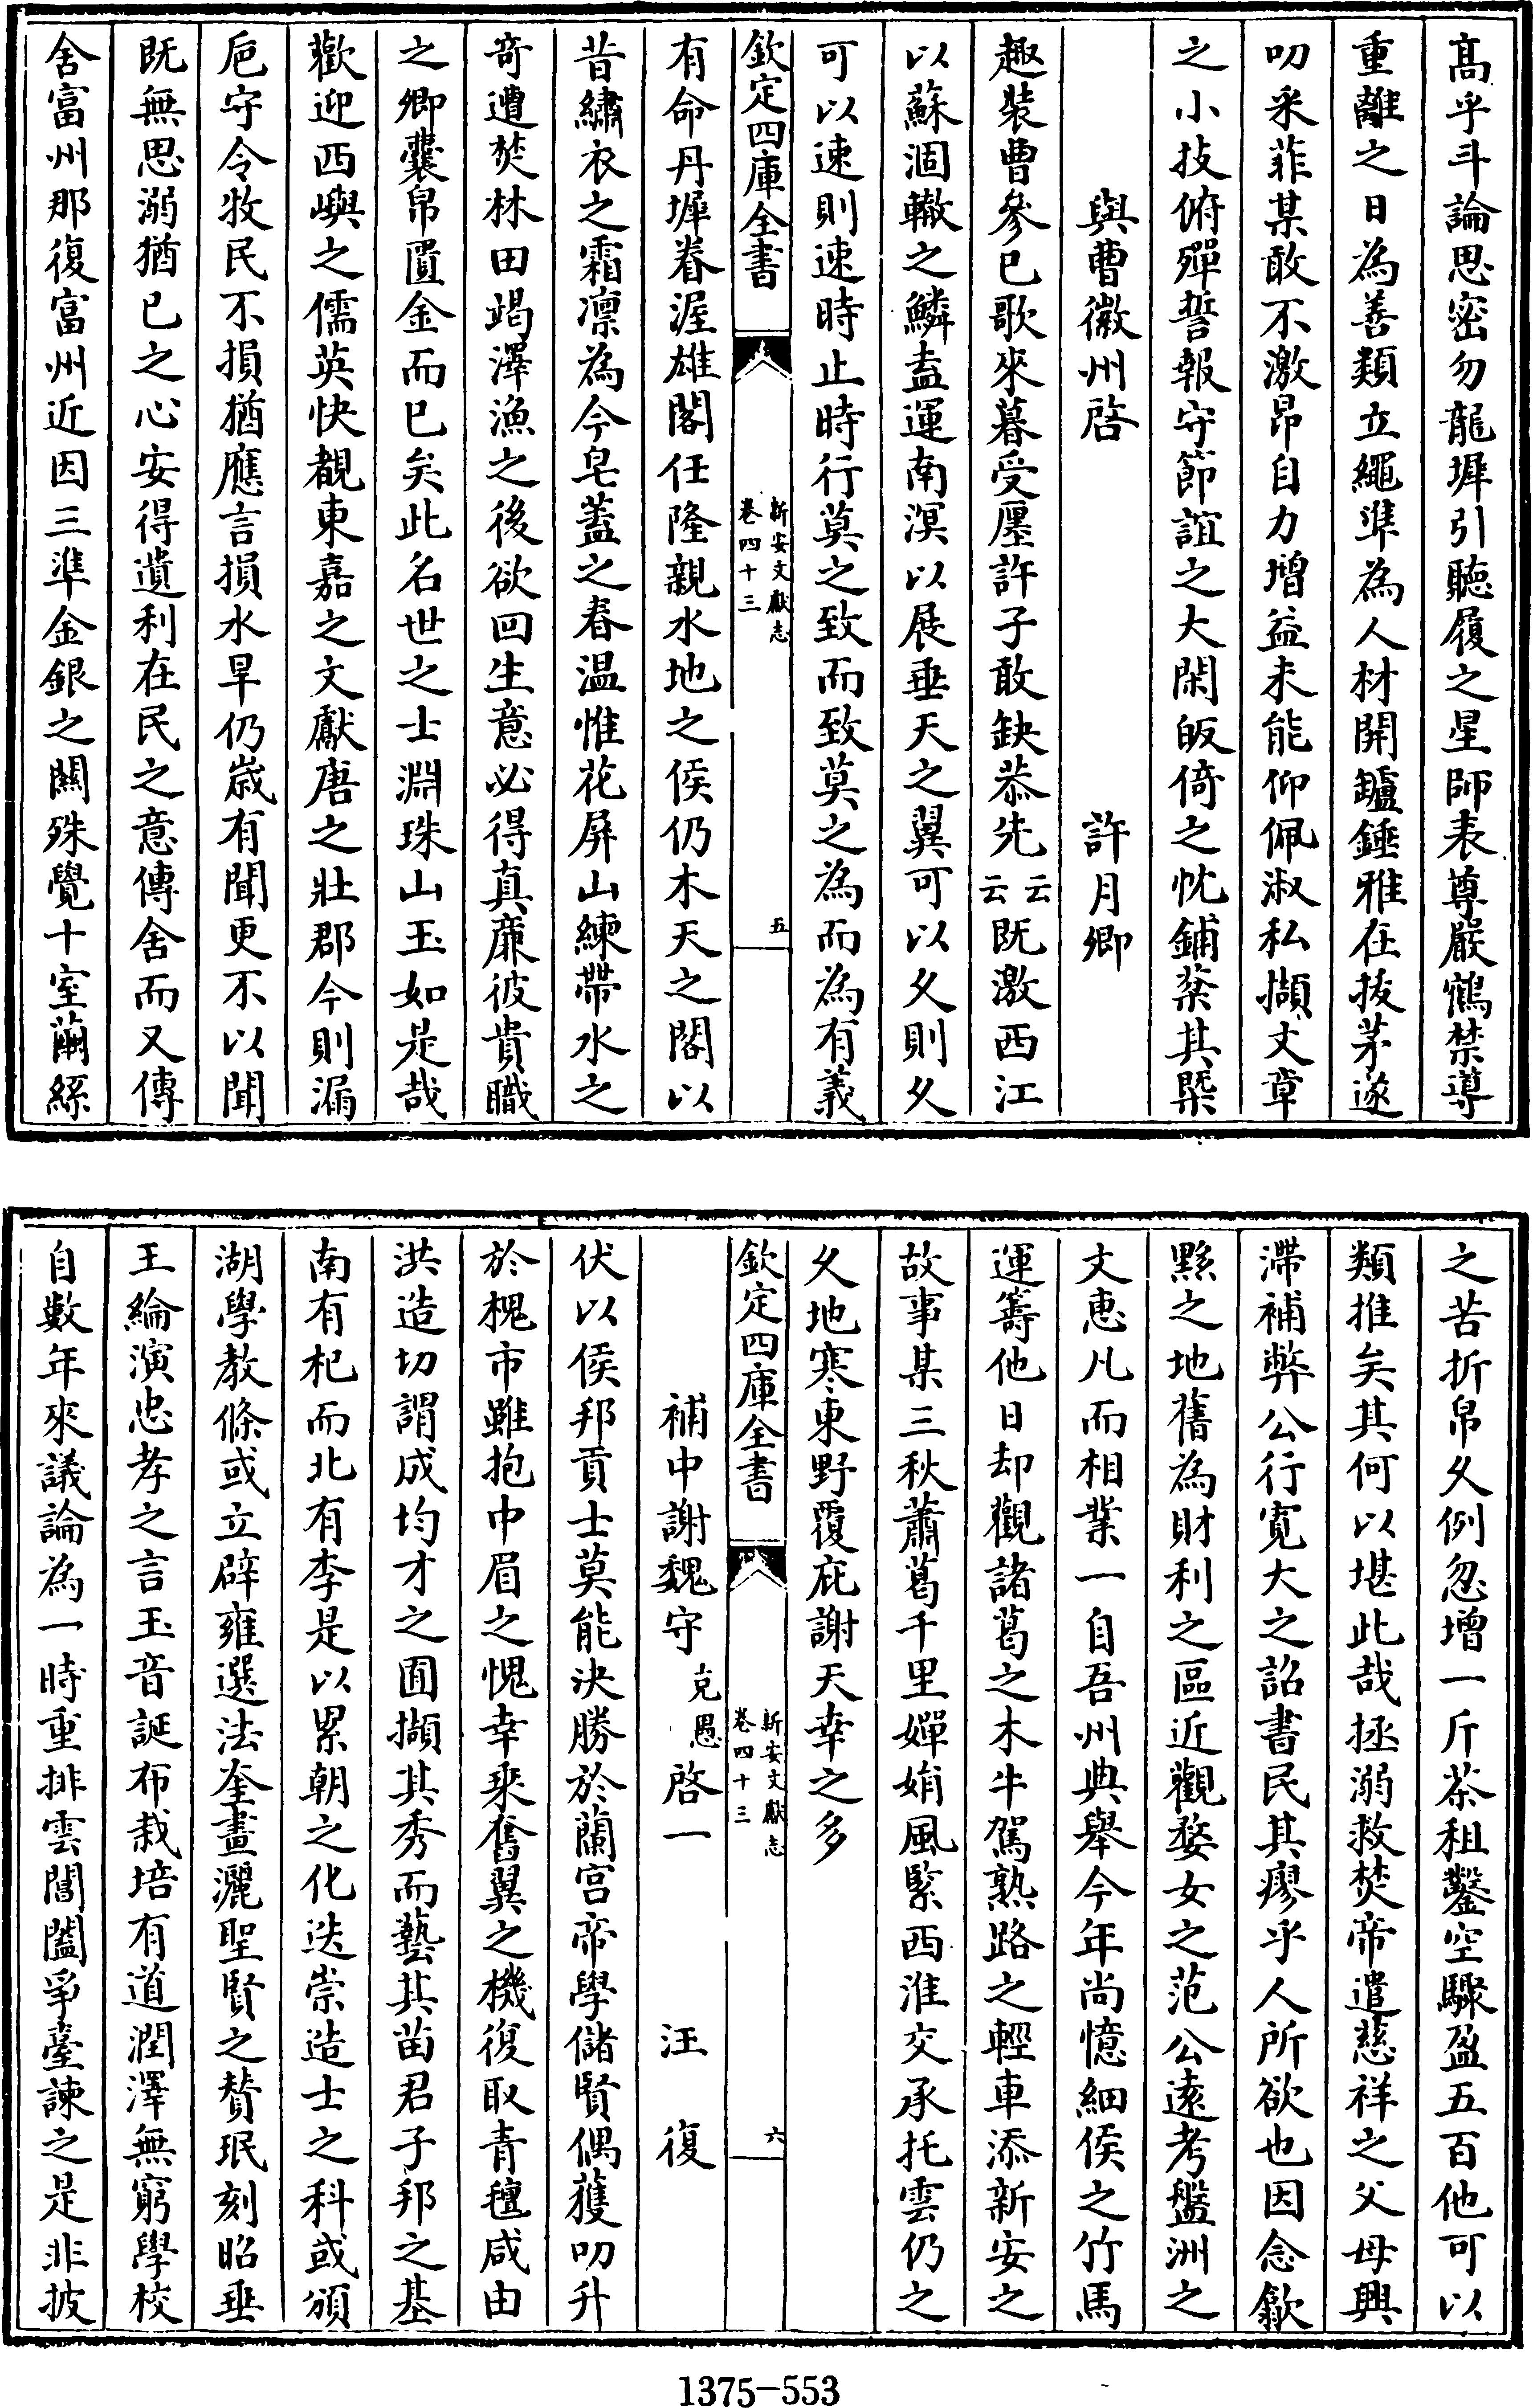 髙乎斗論思密勿龍墀引聽履之星師表尊嚴鶴禁導
重離之日為善類立繩準為人材開鑪錘雅在拔茅遂
叨采菲某敢不激昂自力增益未能仰佩淑私擷文章
之小技俯殫誓報守節誼之大閑皈倚之忱鋪棻其槩
與曹徽州啓 許月卿
趣裝曹參已歌來暮受廛許子敢缺恭先云云既激西江
以蘇涸轍之鱗盍運南溟以展垂天之翼可以久則久
可以速則速時止時行莫之致而致莫之為而為有義
欽定四庫全書 新安文獻志 卷四十三 五
有命丹墀眷渥雄閣任隆親水地之侯仍木天之閣以
昔繡衣之霜凛為今皂蓋之春温惟花屏山練帶水之
竒遭焚林田竭澤漁之後欲回生意必得真亷彼貴職
之卿囊帛匱金而已矣此名世之士淵珠山玉如是哉
歡迎西嶼之儒英快覩東嘉之文獻唐之壯郡今則漏
巵守令牧民不損猶應言損水旱仍嵗有聞更不以聞
既無思溺猶已之心安得遺利在民之意傳舍而又傳
舍富州那復富州近因三準金銀之闗殊覺十室繭絲
之苦折帛久例忽增一斤茶租鑿空驟盈五百他可以
類推矣其何以堪此哉拯溺救焚帝遣慈祥之父母興
滯補弊公行寛大之詔書民其瘳乎人所欲也因念歙
黟之地舊為財利之區近觀婺女之范公逺考盤洲之
文惠凡而相業一自吾州典舉今年尚憶細侯之竹馬
運籌他日却觀諸葛之木牛駕熟路之輕車添新安之
故事某三秋蕭葛千里嬋娟風緊西淮交承托雲仍之
久地寒東野覆庇謝天幸之多
欽定四庫全書 新安文獻志 卷四十三 六
補中謝魏守克愚啓一 汪復
伏以侯邦貢士莫能決勝於蘭宫帝學儲賢偶獲叨升
於槐市雖抱中眉之愧幸乘奮翼之機復取青氊咸由
洪造切謂成均才之囿擷其秀而藝其苗君子邦之基
南有杞而北有李是以累朝之化迭崇造士之科或頒
湖學教條或立辟雍選法奎畫灑聖賢之賛珉刻昭垂
王綸演忠孝之言玉音誕布栽培有道潤澤無窮學校
自數年來議論為一時重排雲閶闔爭臺諫之是非披
1375-553